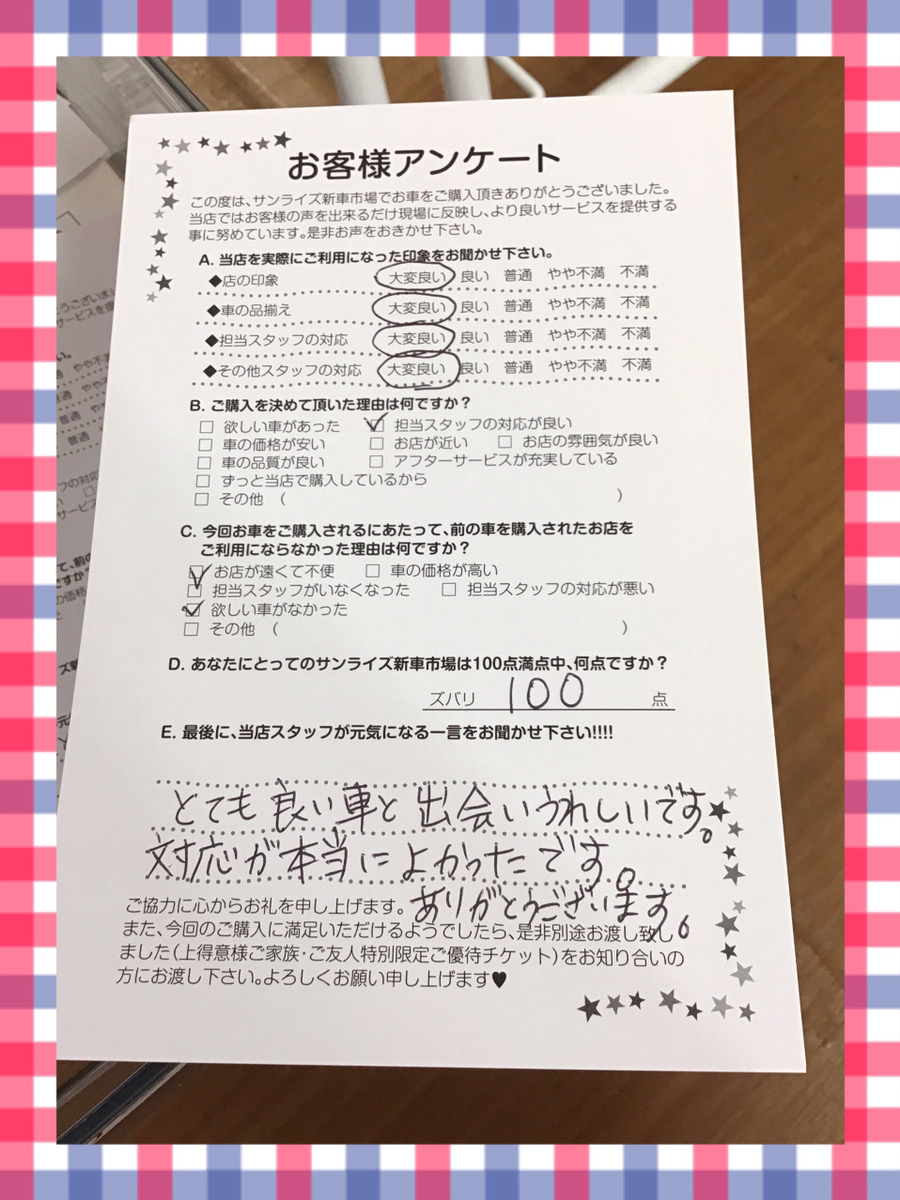 お客様アンケート
この度は、サンライズ新車市場でお車をご購入頂きありがとうございました。
当店ではお客様の声を出来るだけ現場に反映し、より良いサービスを提供する
事に努めています。是非お声をおきかせ下さい。
A. 当店を実際にご利用になった印象をお聞かせ下さい。
◆店の印象 大変良い 良い 普通 やや不満 不満
◆車の品揃え 大変良い 良い 普通 やや不満 不満
◆担当スタッフの対応 大変良い 良い 普通 やや不満 不満
◆その他スタッフの対応 大変良い 良い 普通 やや不満 不満
B. ご購入を決めて頂いた理由は何ですか？
□ 欲しい車があった ☑ 担当スタッフの対応が良い
□ 車の価格が安い □ お店が近い □ お店の雰囲気が良い
□ 車の品質が良い □ アフターサービスが充実している
□ ずっと当店で購入しているから
□ その他 （ ）
C. 今回お車をご購入されるにあたって、前の車を購入されたお店を
ご利用にならなかった理由は何ですか？
☑ お店が遠くて不便 □ 車の価格が高い
□ 担当スタッフがいなくなった □ 担当スタッフの対応が悪い
☑ 欲しい車がなかった
□ その他 （ ）
D. あなたにとってのサンライズ新車市場は100点満点中、何点ですか？
ズバリ 100 点
E. 最後に、当店スタッフが元気になる一言をお聞かせ下さい!!!!
とても良い車と出会いうれしいです。
対応が本当によかったです。
ありがとうございます。
ご協力に心からお礼を申し上げます。
また、今回のご購入に満足いただけるようでしたら、是非別途お渡し致し
ました（上得意様ご家族・ご友人特別限定ご優待チケット）をお知り合いの
方にお渡し下さい。よろしくお願い申し上げます♥